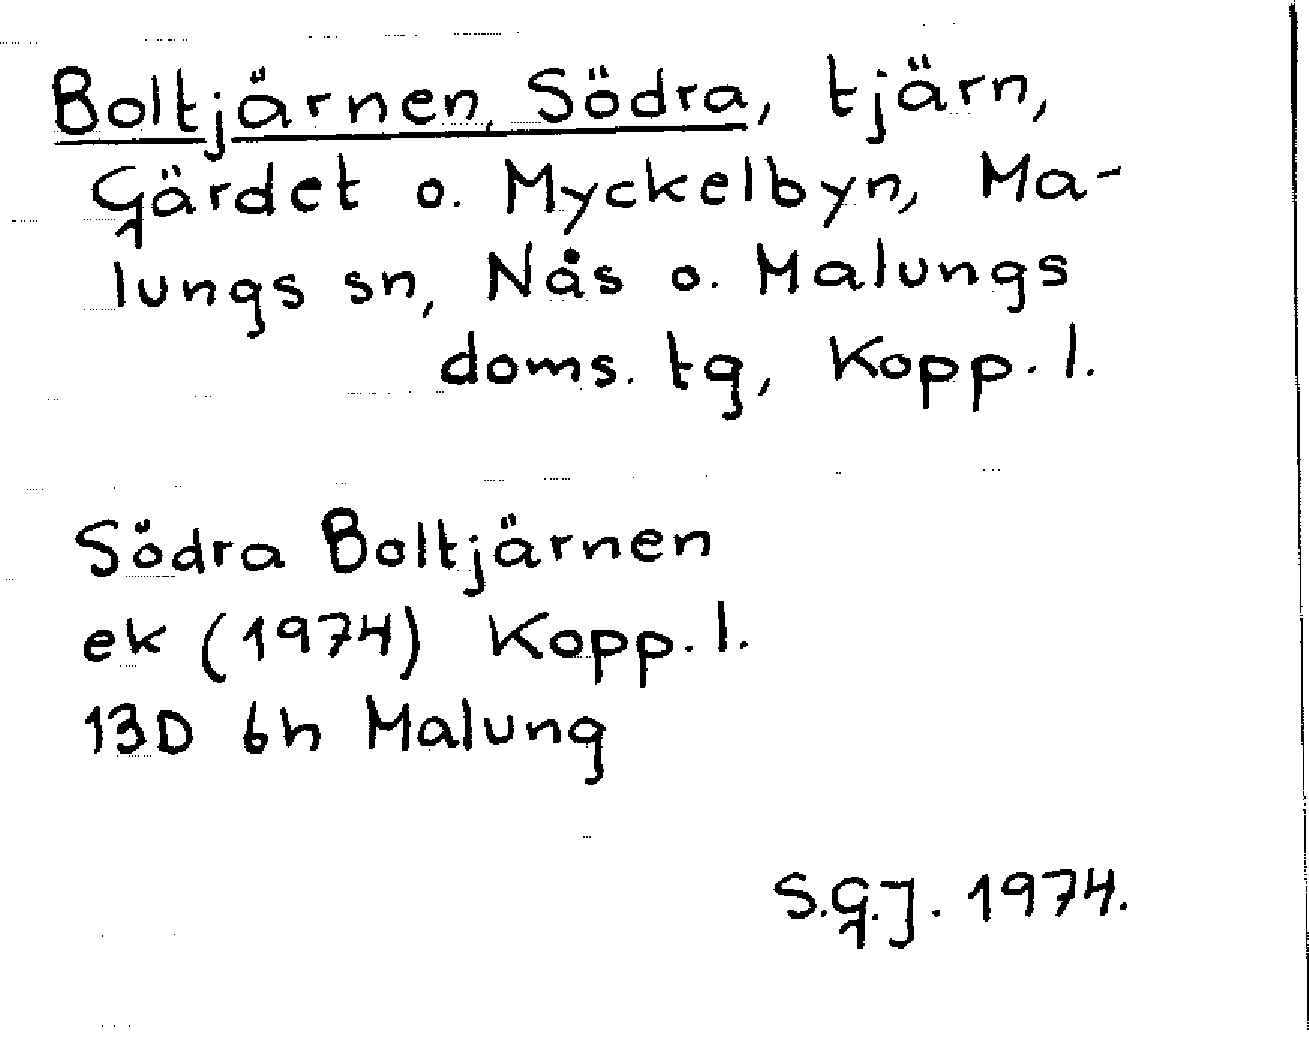 Boltjärnen, Södra, tjärn,
Gärdet o. Myckelbyn, Ma-
lungs sn, Nås o. Malungs
doms. tg, Kopp. l.
Södra Boltjärnen
ek (1974) Kopp. l.
13D 6h Malung
S.G.J. 1974.